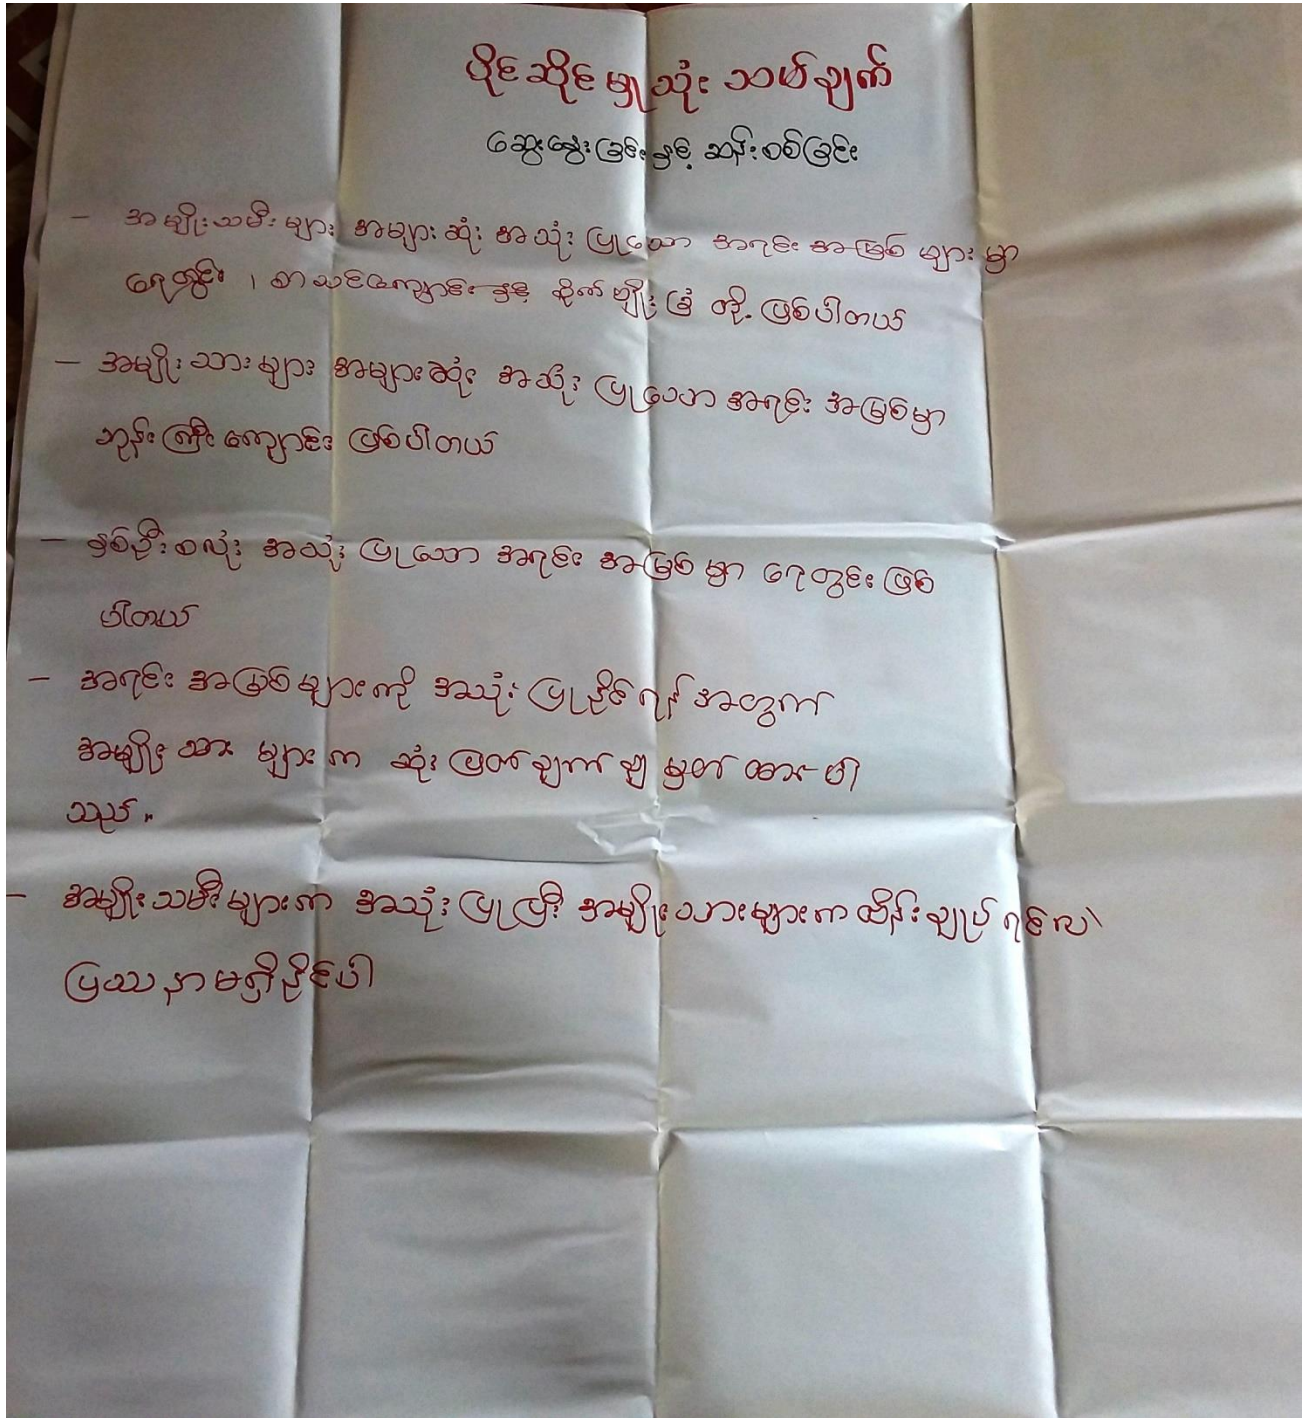 ပိုင်ဆိုင်မှုသုံးသပ်ချက်
ဆွေးနွေးခြင်းနှင့် ဆန်းစစ်ခြင်း
- အမျိုးသမီးများ အများဆုံး အသုံးပြုသော အရင်းအမြစ်များမှာ
ရေတွင်း ၊ စာသင်ကျောင်းနှင့် စိုက်ပျိုးခြံ တို့ ဖြစ်ပါတယ်
- အမျိုးသားများ အများဆုံး အသုံးပြုသော အရင်းအမြစ်မှာ
ဘုန်းကြီးကျောင်း ဖြစ်ပါတယ်
- နှစ်ဦးစလုံး အသုံးပြုသော အရင်းအမြစ်မှာ ရေတွင်းဖြစ်
ပါတယ်
- အရင်းအမြစ်များကို အသုံးပြုနိုင်ရန်အတွက်
အမျိုးသားများက ဆုံးဖြတ်ချက်ချမှတ်ထားပါ
သည်။
- အမျိုးသမီးများက အသုံးပြုပြီး အမျိုးသားများကထိန်းချုပ်ရင်လဲ
ပြဿနာမရှိနိုင်ပါ